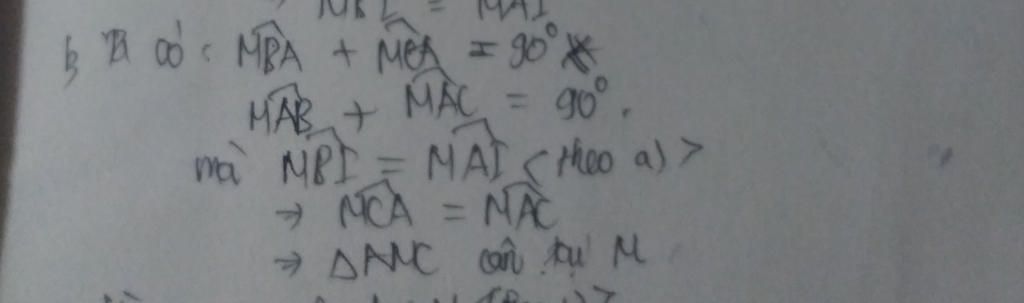 MBI = MAI
b, Ta có: MBA + MCA = 90°
MAB + MAC = 90°.
mà MBI = MAI (theo a)
→ MCA = MAC
→ ΔAMC cân tại M